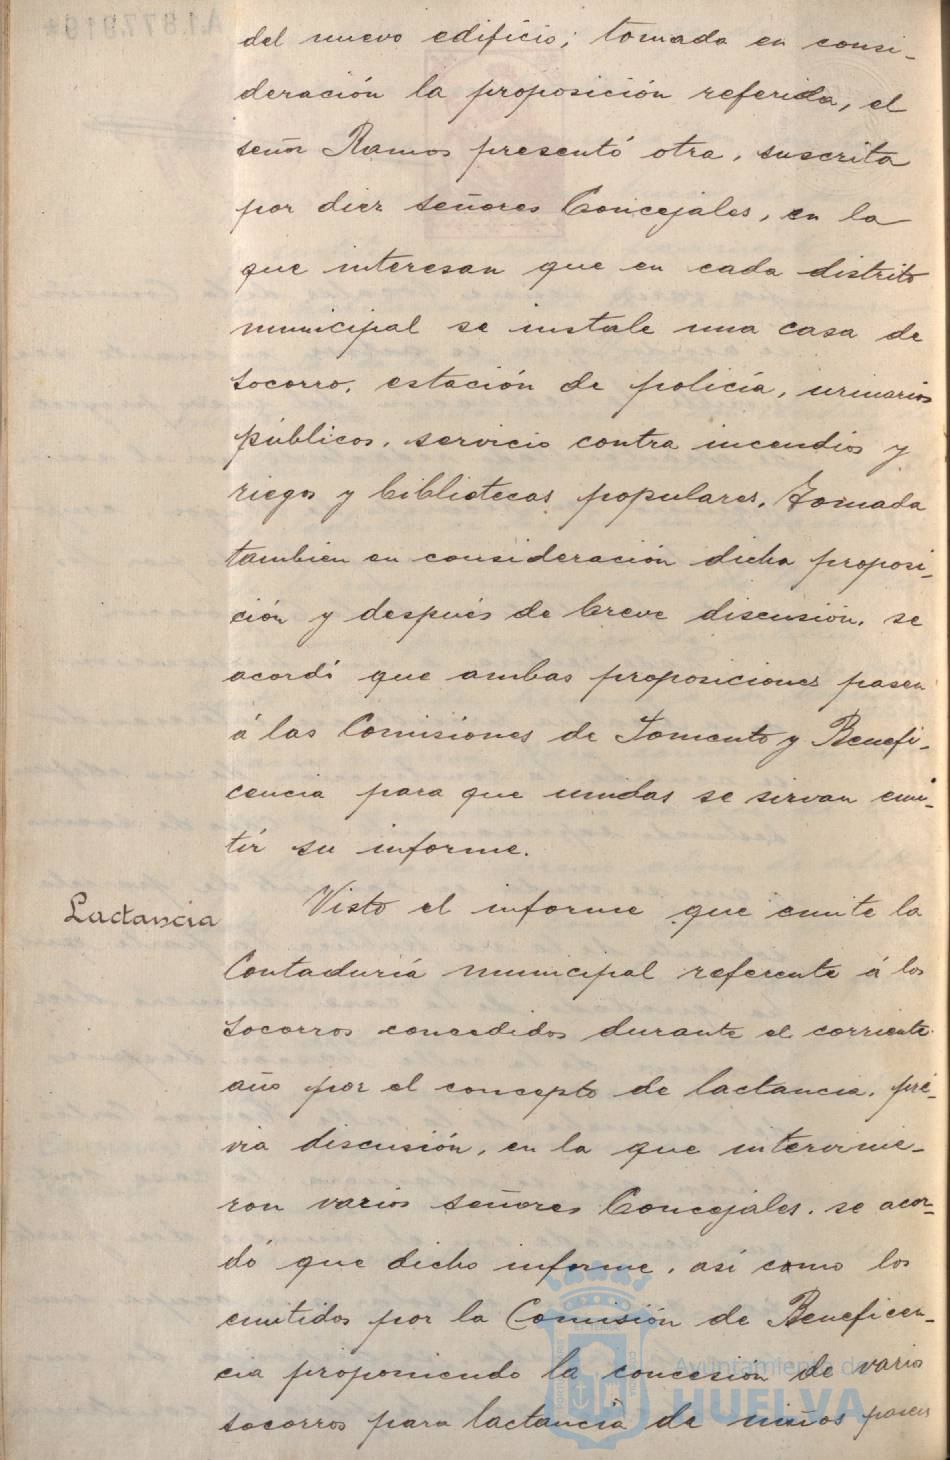 A1.877.919*
del nuevo edificio; tomada en consi-
deración la proposición referida, el
señor Ramos presentó otra, suscrita
por diez señores Concejales, en la
que interesan que en cada distrito
municipal se instale una casa de
socorro, estación de policía, urinarios
públicos, servicio contra incendios y
riegos y bibliotecas populares. Tomada
tambien en consideración dicha proposi-
ción y después de breve discusión, se
acordó que ambas proposiciones pasen
á las Comisiones de Fomento y Benefi-
cencia para que unidas se sirvan emi-
tir su informe.
Lactancia
Visto el informe que emite la
Contaduría municipal referente á los
socorros concedidos durante el corriente
año por el concepto de lactancia, pré-
via discusión, en la que intervinie-
ron varios señores Concejales, se acor-
dó que dicho informe, así como los
emitidos por la Comisión de Beneficen-
cia proponiendo la concesión de varios
socorros para lactancia de niños pasen
Ayuntamiento de
HUELVA